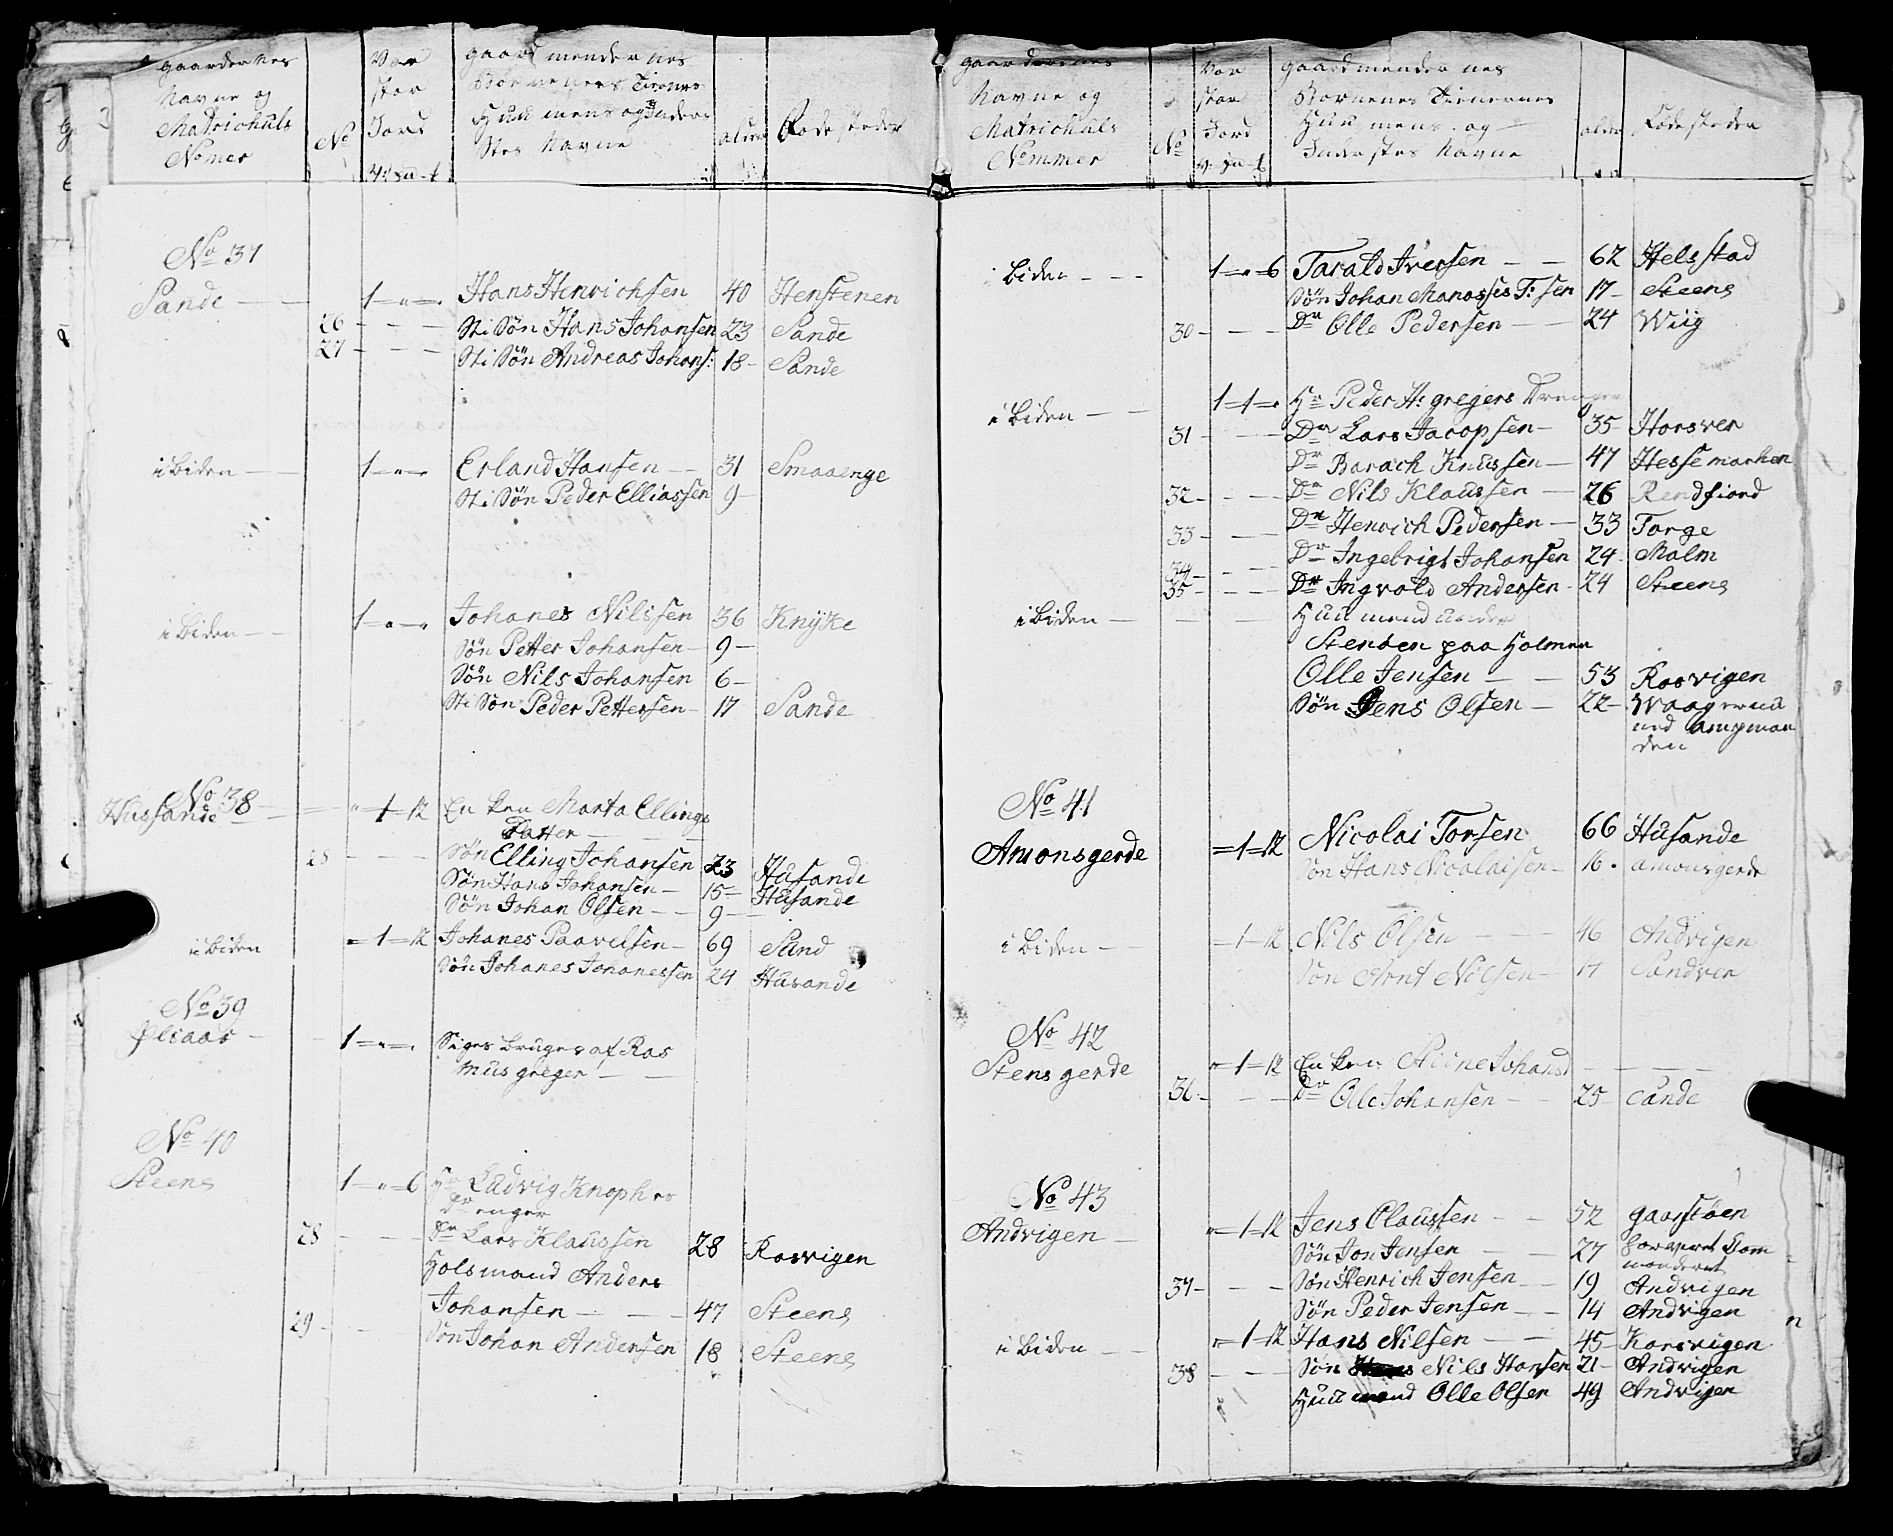 gaardernes Navne og Matrichuls Nomer | No | Vor stor Jord | gaard mendernes Børneners Tienes Huu mens og Inders Stes Navne | alder | Føde steder
No 37
Sande — 1 = „ = Hans Henrichsen 40 Henstenen
26 - - - Sti Søn Hans Johansen 23 Sande
27 - - - Sti Søn Andreas Johans: 18 - Sande
i biden — 1 = „ = Erland Hansen — 31 Smaaenge
Sti Søn Peder Elliassen 9 -
i biden — 1 = „ = Johanes Nilssen 36 Knÿke
Søn Petter Johansen - 9 -
Søn Nils Johansen 6 -
Sti Søn Peder Pettersen - 17 Sande
No 38
Hussande — „ = 1 = 12 Enken Marta Ellings
Datter — —
28 - - - Søn Elling Johansen 23 Husande
Søn Hans Johansen - 15 - Husande
Søn Johan Olsen - - 9 -
i biden = 1 = 12 Johanes Paavelsen - 69 Sund
Søn Johanes Johanessen 24 Husande
No 39
1 = „ = Siges bruges af Ras
mus greger — —
No 40
Steens 1 = „ = 6 Hr Ludvig Knophes
drenger
28 - - - Dr Lars Klaussen 28 Rosvigen
Holsmand Anders
Johansen — — 47 Steens
29 - - Søn Johan Andersen 18 Steens
gaardernes Navne og Matrichuls Nommer | No | Vor stor Jord | gaardmender nes Bornenes Tienernes Huu mens og Inderstes Navne | alder | Fødesteder
i biden - - - 1 = „ = 6 Tarald Iversen — — 62 Helsstad
Søn Johan Manasses T: sen 17 - Steens
30 - - - Dr Olle Pedersen — — 24 Wiig
i biden — — 1 = 1 = „ Hr Peder H: gregers Drenger
31 - - - Dr Lars Jacopsen - 35 - Horsver
Dr Barach Knussen - 47 Hessemarken
32 - - - Dr Nils Klaussen — 26 Rendfiord
33 - - - Dr Henrich Pedersen - 33 Torge
34 - - - Dr Ingebrigt Johansen 24 - Malm
35 - - - Dr Ingvold Andersen - 24 Steens
i biden — — — Huu mend under
Stensen paa Holmen
Olle Jensen — — 53 Rosvigen
Søn Jens Olsen — 22 -
No 41
Amonsgerde = 1 = 12 Nicolai Torsen 66 Husande
Søn Hans Nicolaisen - 16 - amonsgerde
i biden — = 1 = 12 Nils Olsen — — 46 Andvigen
Søn Arnt Nilsen - 17 Sandver
No 42
Stens gerde „ = 1 = 12 Enken Johans
36 - - - Dr Ole Johansen — — 25 - Sande
No 43
Andvigen — „ = 1 = 12 Jens Claussen — — 52 gaarstøen
Søn Jon Jensen — — 27
37 - - - Søn Henrich Jensen - - 19 Andvigen
Søn Peder Jensen - - 14 Andvigen
i biden — — „ = 1 = 12 Hans Nilsen — — 45 - Korsvigen
38 - - - Søn Nils Hansen 21 - Andvigen
Huu mand Olle Olsen 49 Andvigen